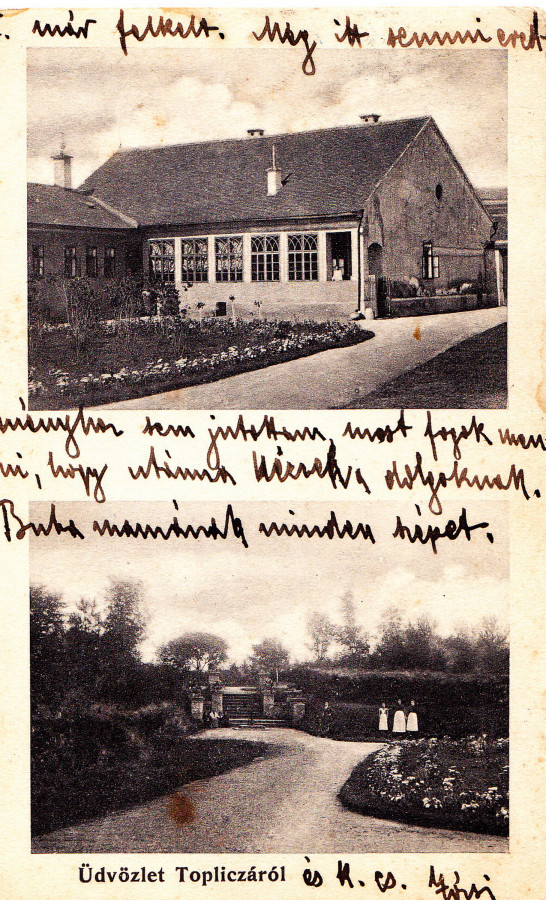 már felkelt. Még itt semmi ered
ményhez sem jutottam, most fogok men
ni, hogy utánna nézzek a dolgoknak.
Buba mamának minden szépet.
Üdvözlet Topliczáról és K. cs.